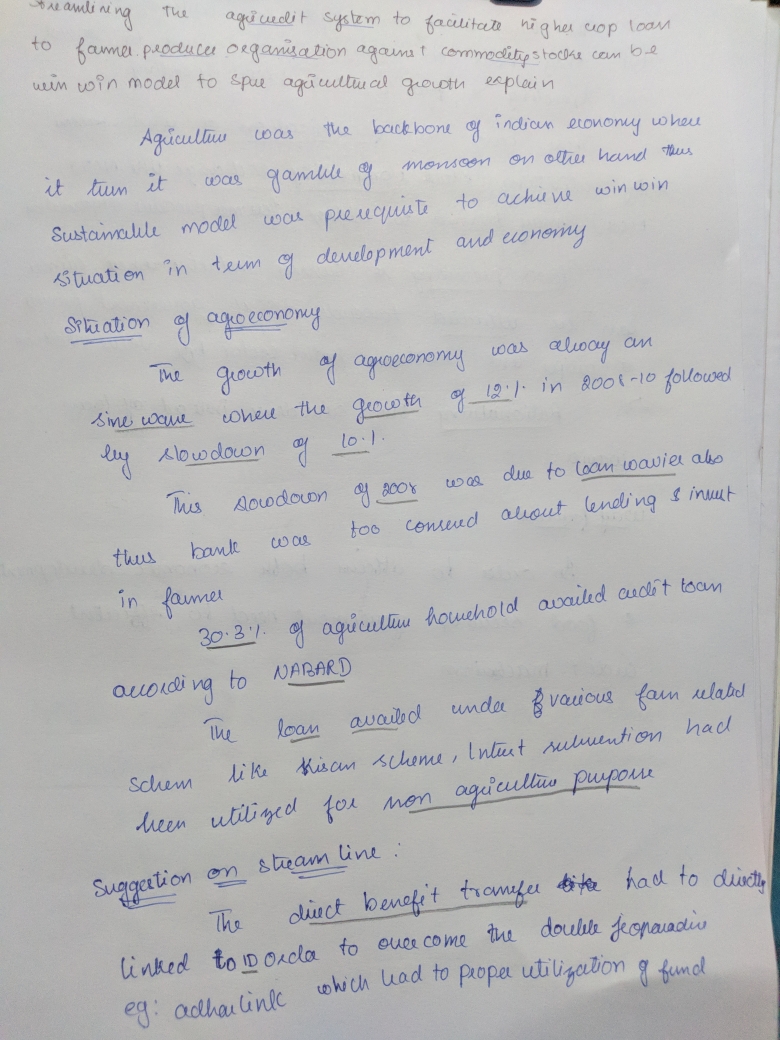 Streamlining the agricredit system to facilitate higher crop loan
to farmer producer organisation against commodity stocks can be
win win model to spur agricultural growth explain
Agriculture was the backbone of indian economy where
it turn it was gamble of monsoon on other hand thus
Sustainable model was prerequiste to achieve win win
situation in term of development and economy
Situation of agroeconomy
The growth of agroeconomy was alway an
sine wave where the growth of 12.1. in 2008-10 followed
by slowdown of 10.1.
This slowdown of 2008 was due to loan wavier also
thus bank was too conserd about lending & invest
in farmer
30.3% of agriculture household availed credit loan
according to NABARD
The loan availed under various farm related
schem like kisan scheme, Intrest subvention had
been utilized for non agriculture purpose
Suggestion on stream line :
The direct benefit transfer had to directly
linked to ID order to overcome the double jeoparadise
eg: adhar link which lead to proper utilization of fund